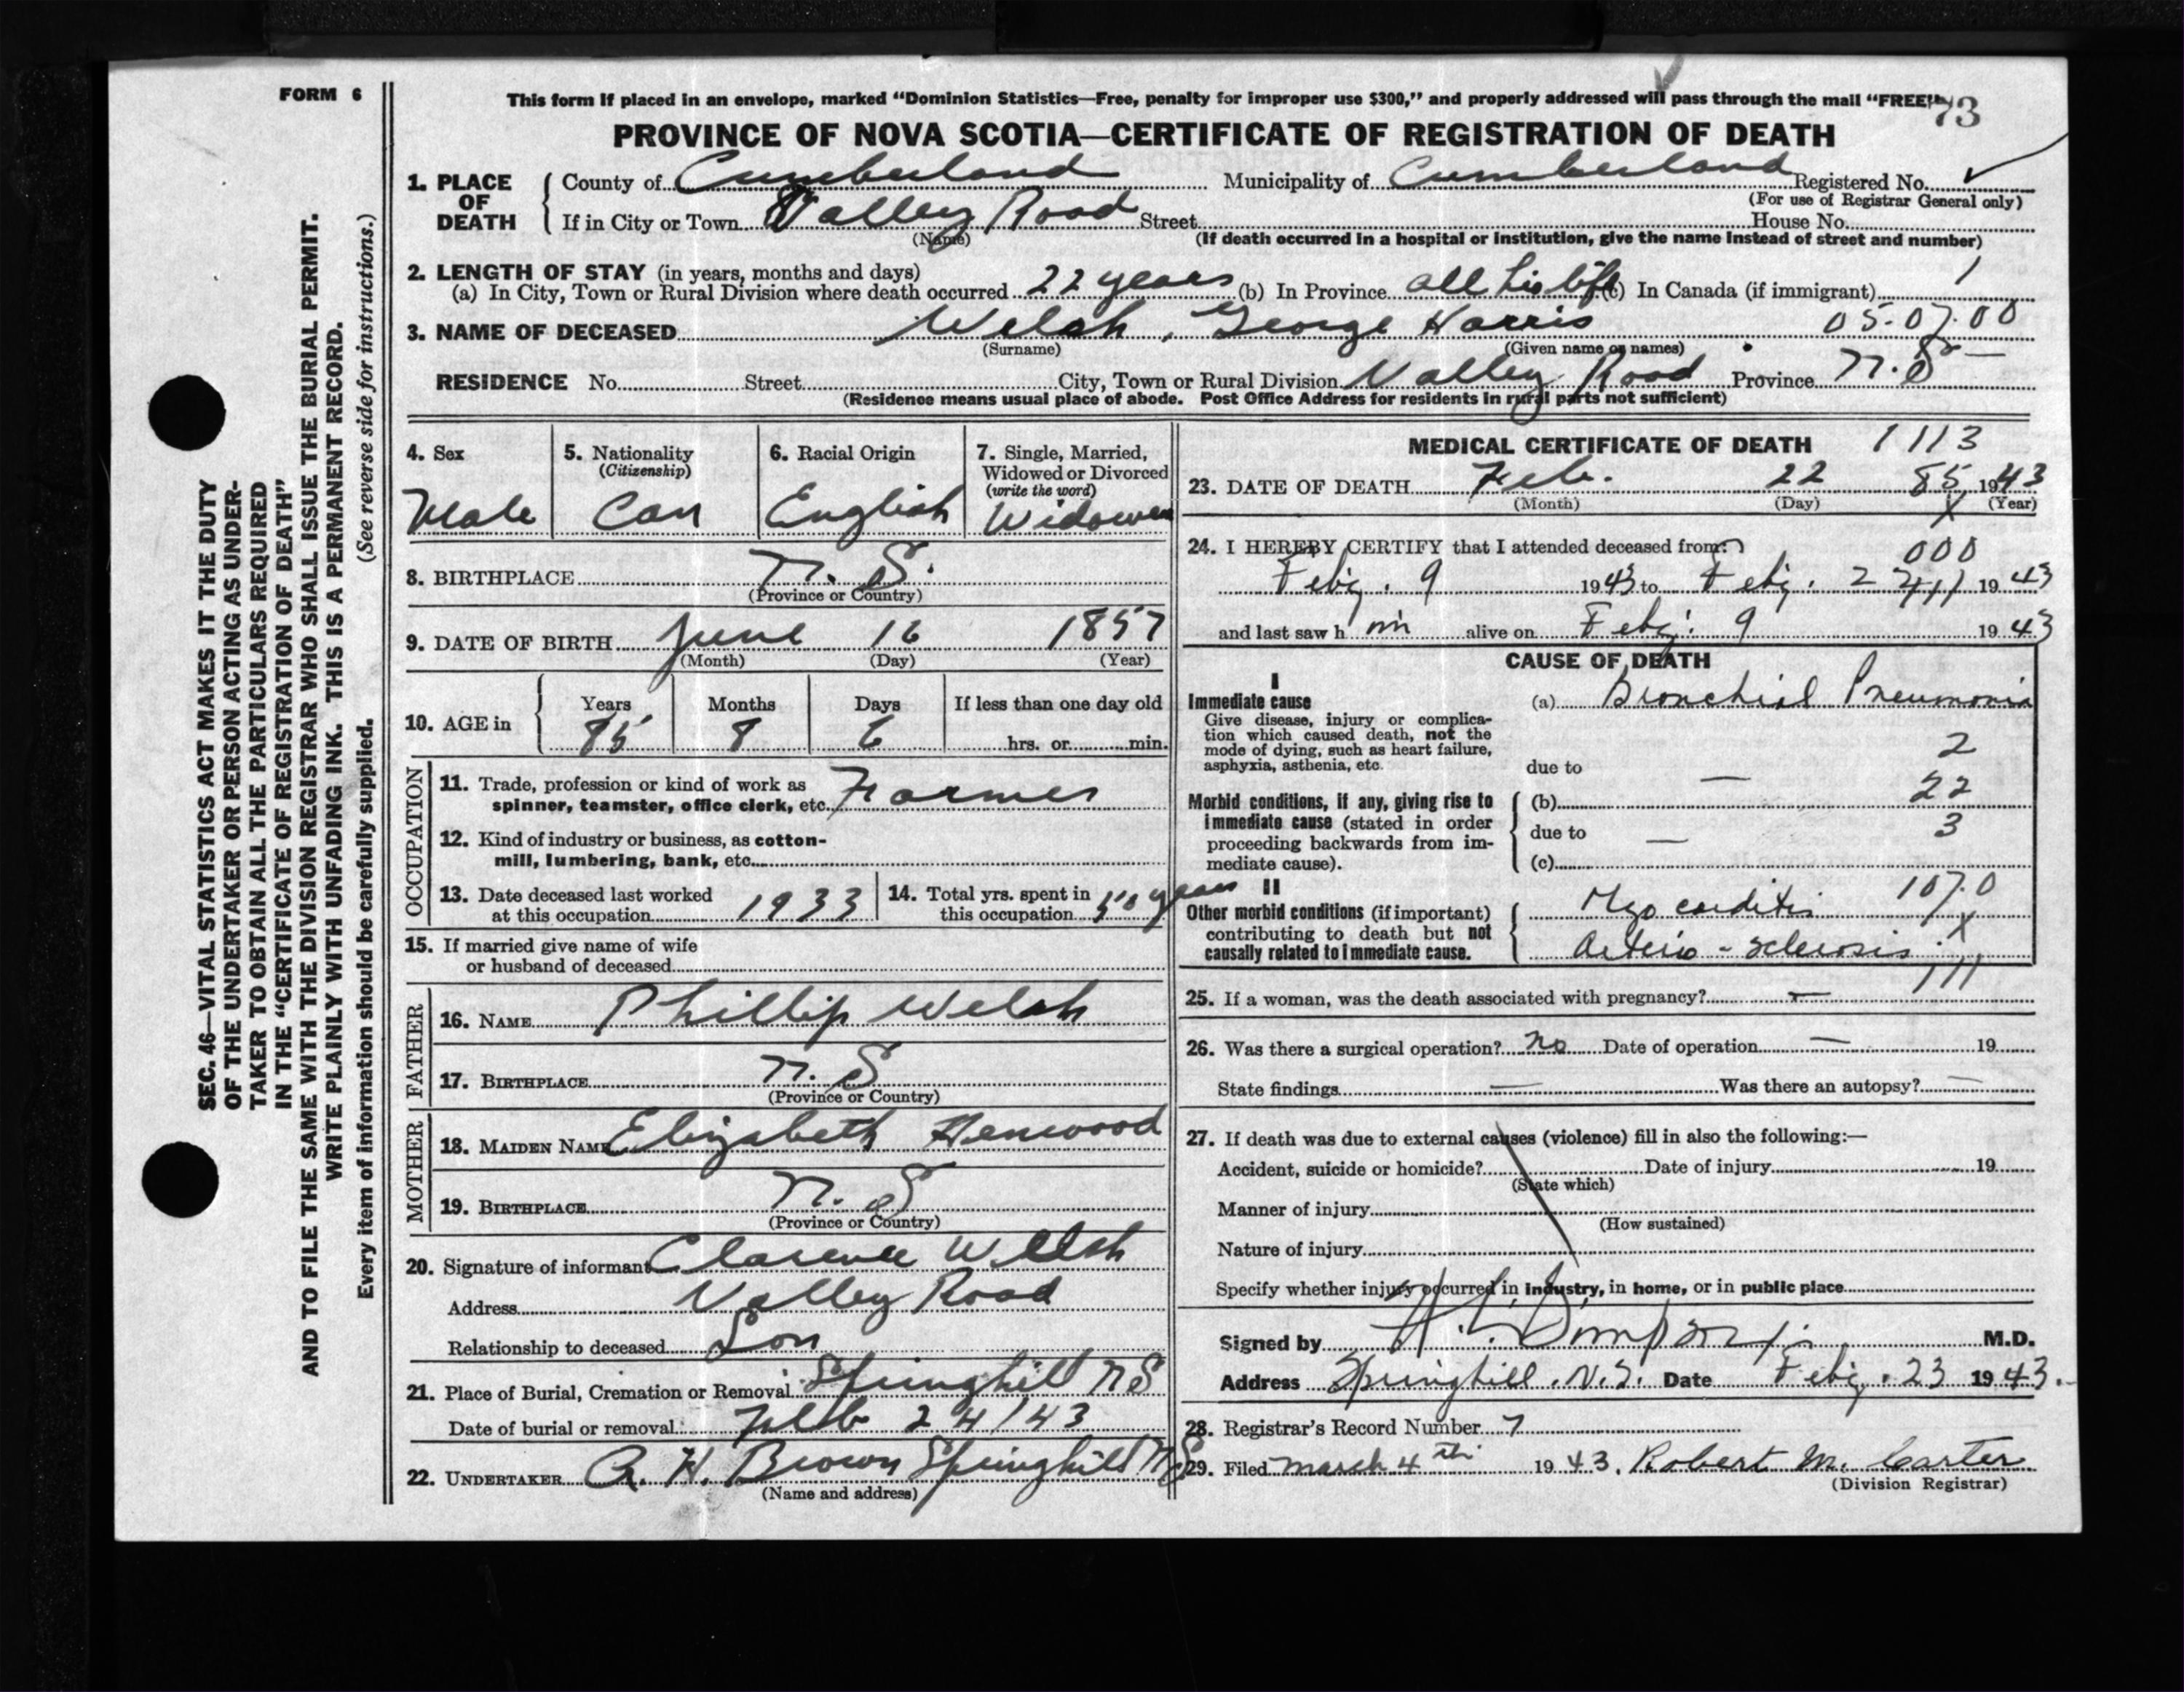 FORM 6
This form if placed in an envelope, marked “Dominion Statistics—Free, penalty for improper use $300,” and properly addressed will pass through the mail “FREE”
73
PROVINCE OF NOVA SCOTIA—CERTIFICATE OF REGISTRATION OF DEATH
1. PLACE OF DEATH
County of Cumberland Municipality of Cumberland Registered No. ✓
(For use of Registrar General only)
If in City or Town Valley Road Street House No.
(Name) (If death occurred in a hospital or institution, give the name instead of street and number)
2. LENGTH OF STAY (in years, months and days)
(a) In City, Town or Rural Division where death occurred 22 years (b) In Province all his life (c) In Canada (if immigrant) 1
3. NAME OF DECEASED Welsh, George Harris 05.07.00
(Surname) (Given name or names)
RESIDENCE No. Street City, Town or Rural Division Valley Road Province N.S —
(Residence means usual place of abode. Post Office Address for residents in rural parts not sufficient)
4. Sex
Male
5. Nationality
(Citizenship)
Can
6. Racial Origin
English
7. Single, Married,
Widowed or Divorced
(write the word)
Widower
8. BIRTHPLACE N. S.
(Province or Country)
9. DATE OF BIRTH June 16 1857
(Month) (Day) (Year)
10. AGE in
Years Months Days If less than one day old
85 8 6 hrs. or min.
OCCUPATION
11. Trade, profession or kind of work as
spinner, teamster, office clerk, etc. Farmer
12. Kind of industry or business, as cotton-
mill, lumbering, bank, etc.
13. Date deceased last worked
at this occupation 1933
14. Total yrs. spent in
this occupation 50 years
15. If married give name of wife
or husband of deceased
FATHER
16. NAME Phillip Welsh
17. BIRTHPLACE N. S
(Province or Country)
MOTHER
18. MAIDEN NAME Elizabeth Henwood
19. BIRTHPLACE N. S
(Province or Country)
20. Signature of informant Clarence Welsh
Address Valley Road
Relationship to deceased Son
21. Place of Burial, Cremation or Removal Springhill NS
Date of burial or removal Feb 24/43
22. UNDERTAKER R. H. Brown Springhill NS
(Name and address)
MEDICAL CERTIFICATE OF DEATH 1113
23. DATE OF DEATH Feb. 22 85 1943
(Month) (Day) X (Year)
24. I HEREBY CERTIFY that I attended deceased from: 000
Feby. 9 1943 to Feby. 22 1943
and last saw h im alive on Feby. 9 1943
CAUSE OF DEATH
I
Immediate cause
Give disease, injury or complica-
tion which caused death, not the
mode of dying, such as heart failure,
asphyxia, asthenia, etc.
(a) Bronchial Pneumonia
2
due to —
Morbid conditions, if any, giving rise to
immediate cause (stated in order
proceeding backwards from im-
mediate cause).
(b) 22
due to — 3
(c)
II
Other morbid conditions (if important)
contributing to death but not
causally related to immediate cause.
Myocarditis 107.0
X
Arterio-sclerosis
111
25. If a woman, was the death associated with pregnancy? —
26. Was there a surgical operation? No Date of operation — 19
State findings — Was there an autopsy? —
27. If death was due to external causes (violence) fill in also the following:—
Accident, suicide or homicide? Date of injury 19
(State which)
Manner of injury
(How sustained)
Nature of injury
Specify whether injury occurred in industry, in home, or in public place
Signed by Simpson M.D.
Address Springhill. N.S. Date Feby. 23 1943.
28. Registrar's Record Number 7
29. Filed March 4th 1943. Robert M. Carter
(Division Registrar)
SEC. 46—VITAL STATISTICS ACT MAKES IT THE DUTY
OF THE UNDERTAKER OR PERSON ACTING AS UNDER-
TAKER TO OBTAIN ALL THE PARTICULARS REQUIRED
IN THE “CERTIFICATE OF REGISTRATION OF DEATH”
AND TO FILE THE SAME WITH THE DIVISION REGISTRAR WHO SHALL ISSUE THE BURIAL PERMIT.
WRITE PLAINLY WITH UNFADING INK. THIS IS A PERMANENT RECORD.
Every item of information should be carefully supplied. (See reverse side for instructions.)